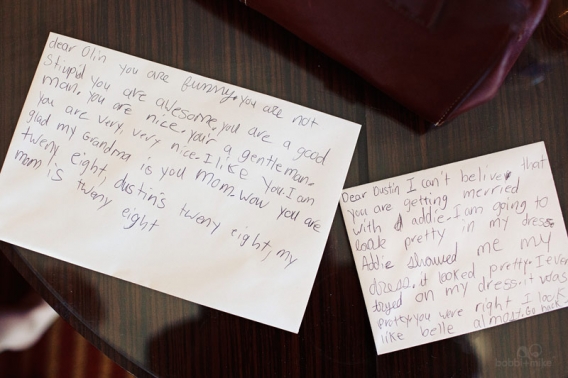 dear Olin you are funny. you are not
stiupid you are awesome. you are a good
man. you are nice. your a gentleman.
you are very, very nice. I like you. I am
glad my Grandma is you mom. wow you are
tweny eight, dustin's tweny eight, my
mom is tweny eight
Dear Dustin I can't belive that
you are getting merried
with addie. I am going to
look pretty in my dress
Addie showed me my
dress. it looked pretty. I even
tryed on my dress. it was
pretty. you were right I look
like belle almost.
bobbi+mike